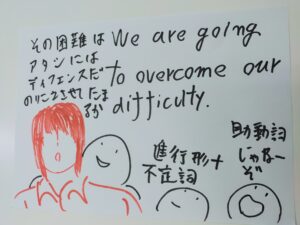 その困難は
アタシには
ディフェンスだ
のりこさせてたま
るか
We are going
to overcome our
difficulty.
進行形＋
不定詞
助動詞
じゃなー
ぞ